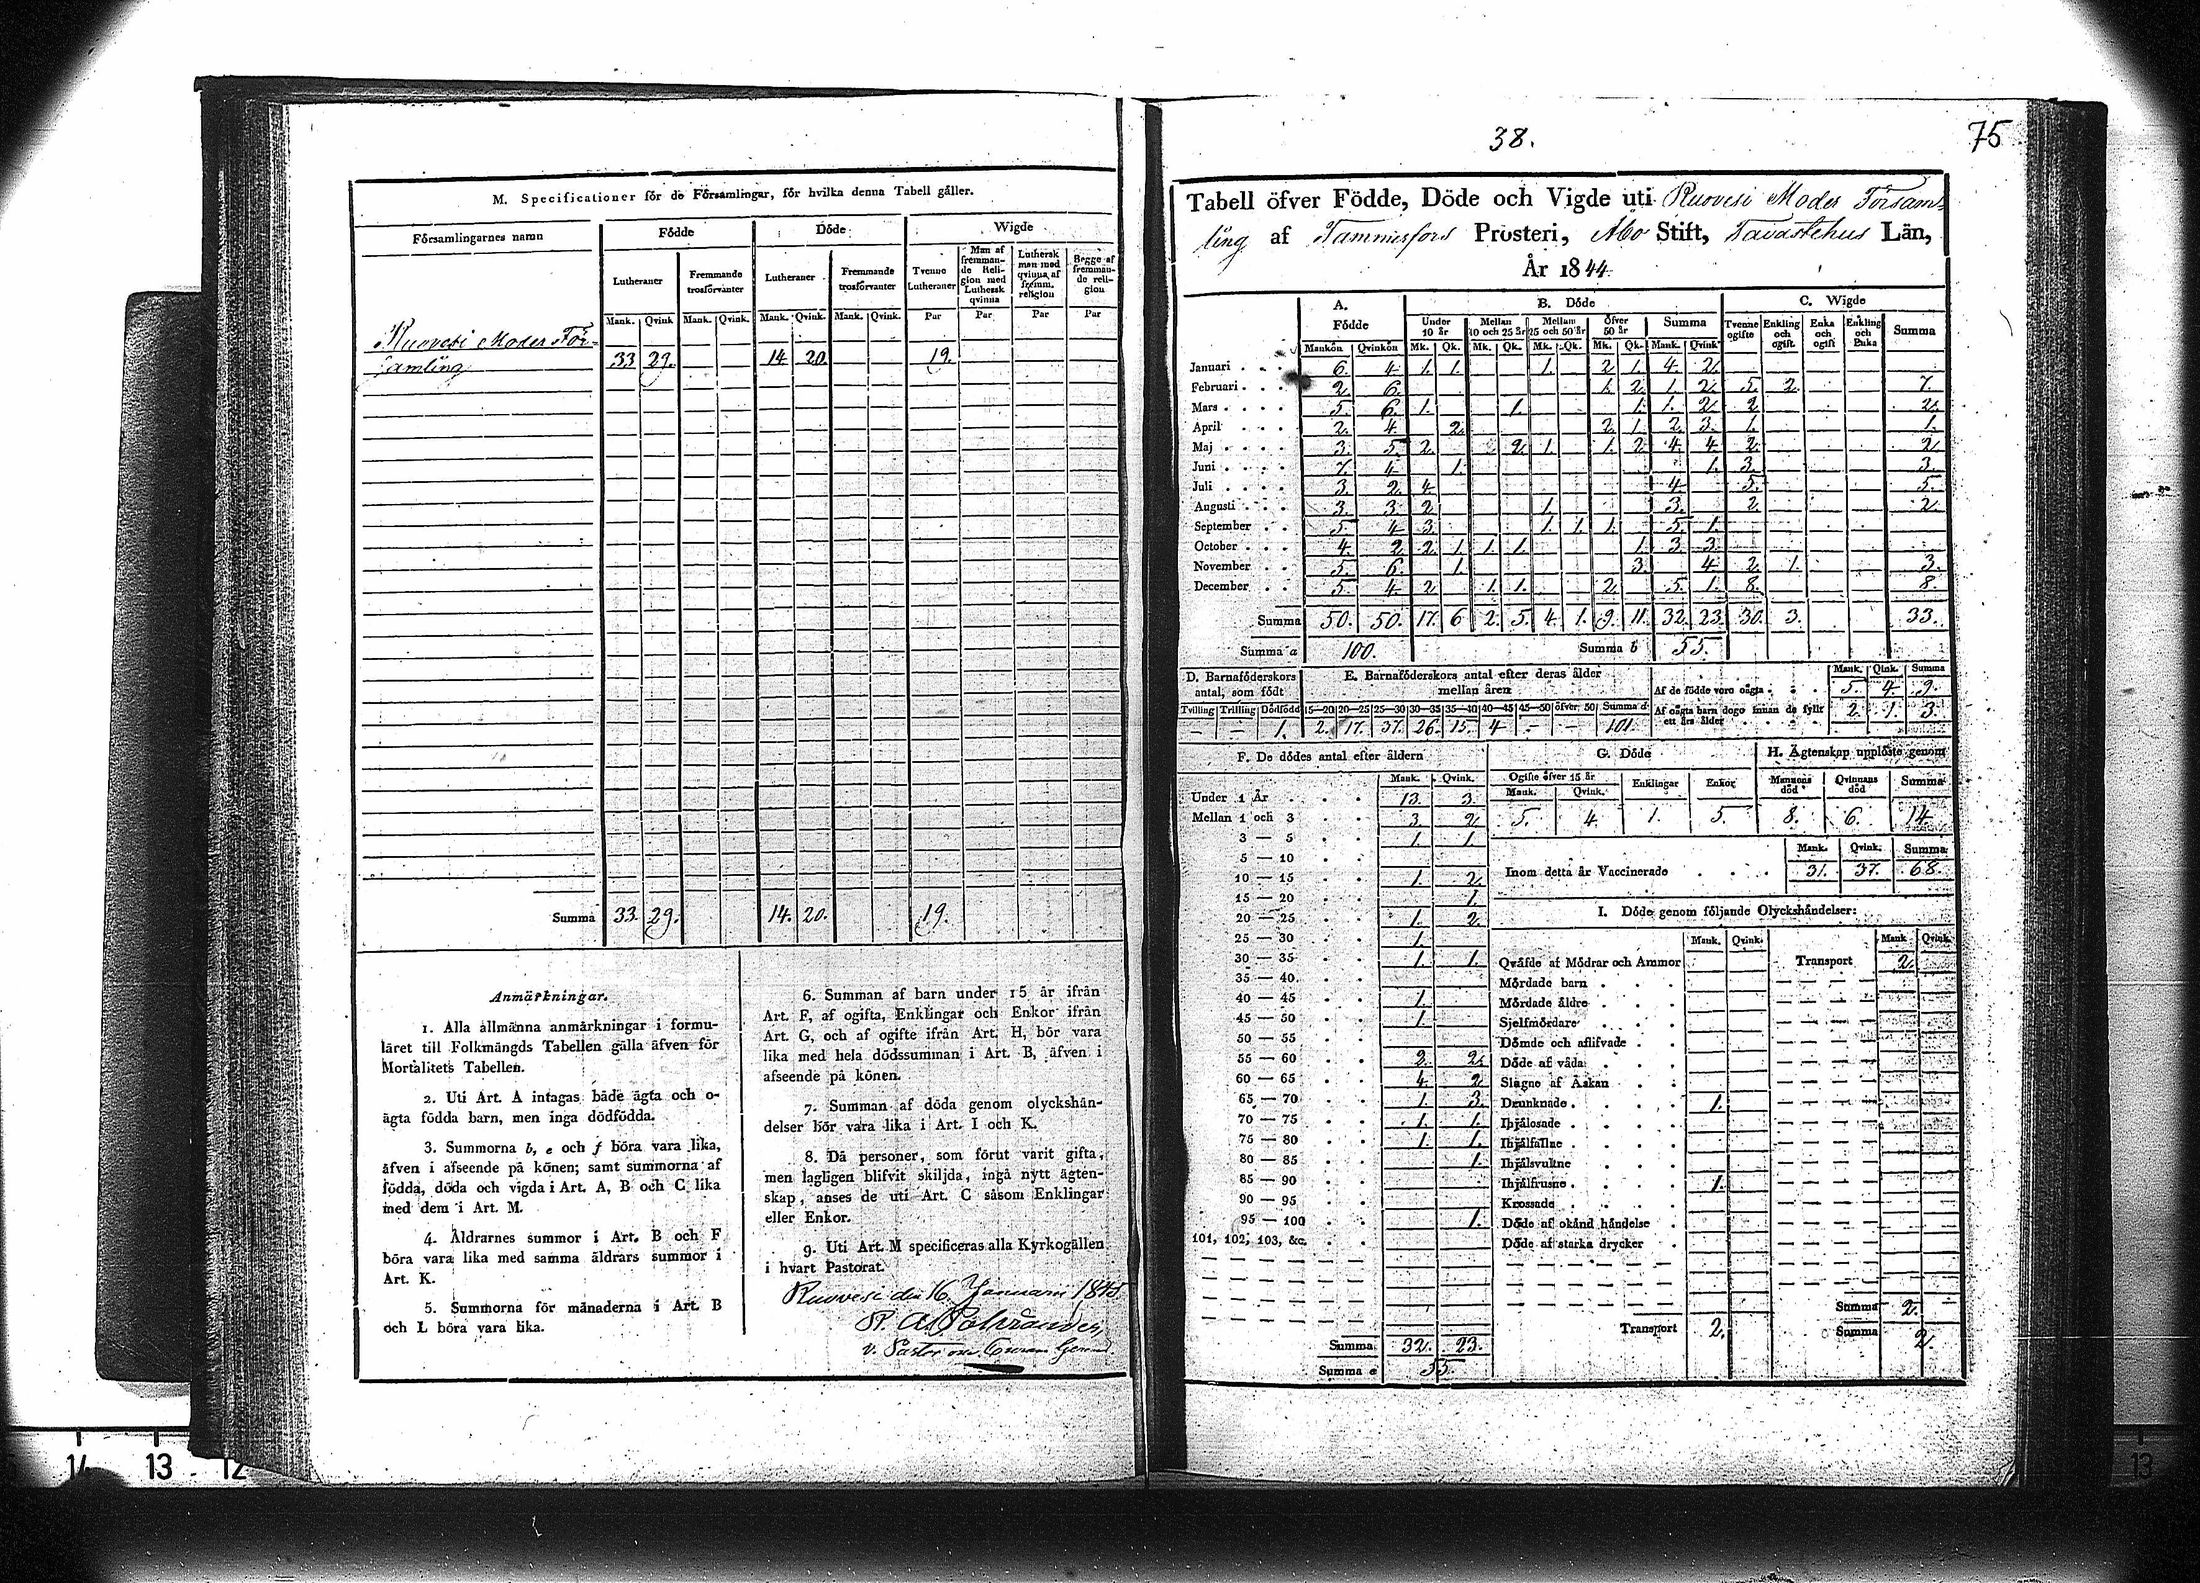 M. Specificationer för de Församlingar, för hvilka denna Tabell gäller.
Församlingarnes namn Födde Döde Wigde
Lutheraner Fremmande trosförvanter Lutheraner Fremmande trosförvanter Tvenne Lutheraner Man af fremmande Religion med Luthersk qvinna Luthersk man med qvinna af fremm. religion Begge af fremmande religion
Mank. Qvink Mank. Qvink. Mank. Qvink. Mank. Qvink. Par Par Par Par
Ruovesi Moder För-
samling 33 29. 14 20. 19.
Summa 33. 29. 14. 20. 19.
Anmärkningar.
1. Alla allmänna anmärkningar i formu-
läret till Folkmängds Tabellen gälla äfven för
Mortalitets Tabellen.
2. Uti Art. A intagas både ägta och o-
ägta födda barn, men inga dödfödda.
3. Summorna b, e och f böra vara lika,
äfven i afseende på könen; samt summorna af
födda, döda och vigda i Art. A, B och C lika
med dem i Art. M.
4. Åldrarnes summor i Art. B och F
böra vara lika med samma åldrars summor i
Art. K.
5. Summorna för månaderna i Art. B
och L böra vara lika.
6. Summan af barn under 15 år ifrån
Art. F, af ogifta, Enklingar och Enkor ifrån
Art. G, och af ogifte ifrån Art. H, bör vara
lika med hela dödssumman i Art. B, äfven i
afseende på könen.
7. Summan af döda genom olyckshän-
delser bör vara lika i Art. I och K.
8. Då personer, som förut varit gifta,
men lagligen blifvit skiljda, ingå nytt ägten-
skap, anses de uti Art. C såsom Enklingar
eller Enkor.
9. Uti Art. M specificeras alla Kyrkogällen
i hvart Pastorat.
Ruovesi den 16 Januarii 1845
v. Pastor
38.
75
Tabell öfver Födde, Döde och Vigde uti Ruovesi Moder Försam-
ling af Tammerfors Prosteri, Åbo Stift, Tavastehus Län,
År 1844
A. Födde B. Döde C. Wigde
Under 10 år Mellan 10 och 25 år Mellan 25 och 50 år Öfver 50 år Summa Tvenne ogifte Enkling och ogift. Enka och ogift Enkling och Enka Summa
Mankön Qvinkön Mk. Qk. Mk. Qk. Mk. Qk. Mk. Qk. Mank. Qvink
Januari 6. 4. 1. 1. 1. 2. 1. 4. 2.
Februari 2. 6. 1. 2. 1. 2. 5. 2. 7.
Mars 5. 6. 1. 1. 1. 1. 2. 2. 2.
April 2. 4. 2. 2. 1. 2. 3. 1. 1.
Maj 3. 5. 2. 2. 1. 1. 2. 4. 4. 2. 2.
Juni 7. 4. 1. 1. 3. 3.
Juli 3. 2. 4. 4. 5. 5.
Augusti 3. 3. 2. 1. 3. 2. 2.
September 5. 4. 3. 1. 1. 1. 5. 1.
October 4. 2. 2. 1. 1. 1. 1. 3. 3.
November 5. 6. 1. 3. 4. 2. 1. 3.
December 5. 4. 2. 1. 1. 2. 5. 1. 8. 8.
Summa 50. 50. 17. 6 2. 5. 4. 1. 9. 11. 32. 23. 30. 3. 33.
Summa a 100. Summa b 55.
D. Barnaföderskors antal, som födt
Tvilling Trilling Dödfödd
— — 1.
E. Barnaföderskors antal efter deras ålder mellan åren
15—20 20—25 25—30 30—35 35—40 40—45 45—50 öfver 50 Summa d
2. 17. 37. 26. 15. 4 — — 101.
Mank. Qink. Summa
Af de födde voro oägta 5. 4. 9.
Af oägta barn dogo innan de fyllt ett års ålder 2. 1. 3.
F. De dödes antal efter åldern
Mank. Qvink.
Under 1 År 13. 3.
Mellan 1 och 3 3. 2.
3 — 5 1. 1.
5 — 10
10 — 15 1. 2.
15 — 20 1.
20 — 25 1. 2.
25 — 30 1.
30 — 35 1. 1.
35 — 40
40 — 45 1.
45 — 50 1.
50 — 55
55 — 60 2. 2.
60 — 65 4. 2.
65 — 70 1. 3.
70 — 75 1. 1.
75 — 80 1. 1.
80 — 85 1.
85 — 90
90 — 95
95 — 100 1.
101, 102, 103, &c.
Summa 32. 23.
Summa e 55.
G. Döde
Ogifte öfver 15 år Enklingar Enkor
Mank. Qvink.
5. 4. 1. 5.
H. Ägtenskap upplöste genom
Mannens död Qvinnans död Summa
8. 6. 14.
Mank. Qvink. Summa
Inom detta år Vaccinerade 31. 37. 68.
I. Döde genom följande Olyckshändelser:
Mank. Qvink. Mank. Qvink
Qväfde af Mödrar och Ammor Transport 2.
Mördade barn
Mördade äldre
Sjelfmördare
Dömde och aflifvade
Döde af våda
Slagne af Åskan
Drunknade 1.
Ihjälosade
Ihjälfallne
Ihjälsvultne
Ihjälfrusne 1.
Krossade
Döde af okänd händelse
Döde af starka drycker
Summa 2.
Transport 2. Summa 2.
14 13 12
13